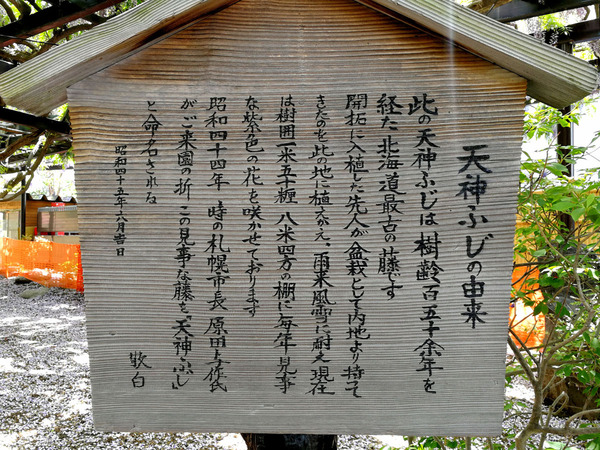 天神ふじの由来
此の天神ふじは樹齢百五十余年を
経た北海道最古の藤です
開拓に入植した先人が盆栽として内地より持って
きたのを此の地に植えかえ、雨来風雪に耐え現在
は樹囲一米五十糎 八米四方の棚に毎年見事
な紫色の花を咲かせております
昭和四十四年 時の札幌市長 原田与作氏
がご来園の折 この見事な藤を「天神ふじ」
と命名される
昭和四十五年六月吉日
敬白